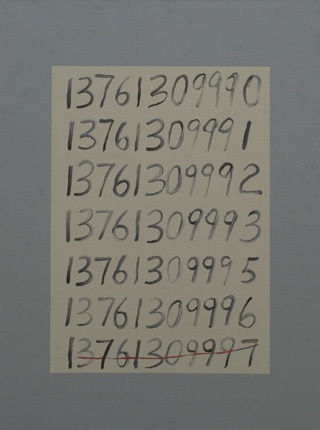 13761309990
13761309991
13761309992
13761309993
13761309995
13761309996
13761309997